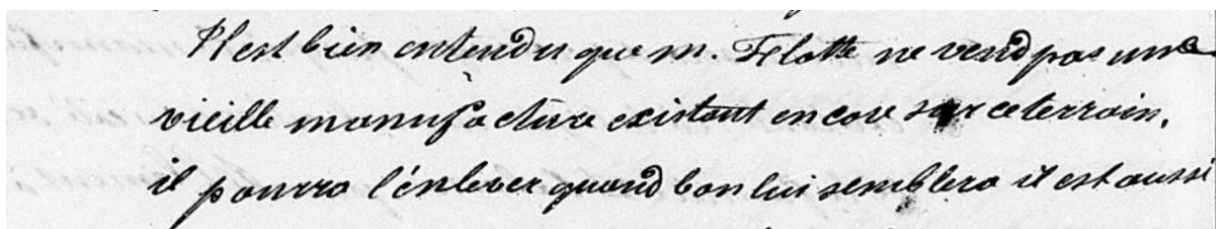 Il est bien entendu que m. Flotte ne vend pas une
vieille manufacture existant encore sur ce terrain,
il pourra l'enlever quand bon lui semblera il est aussi